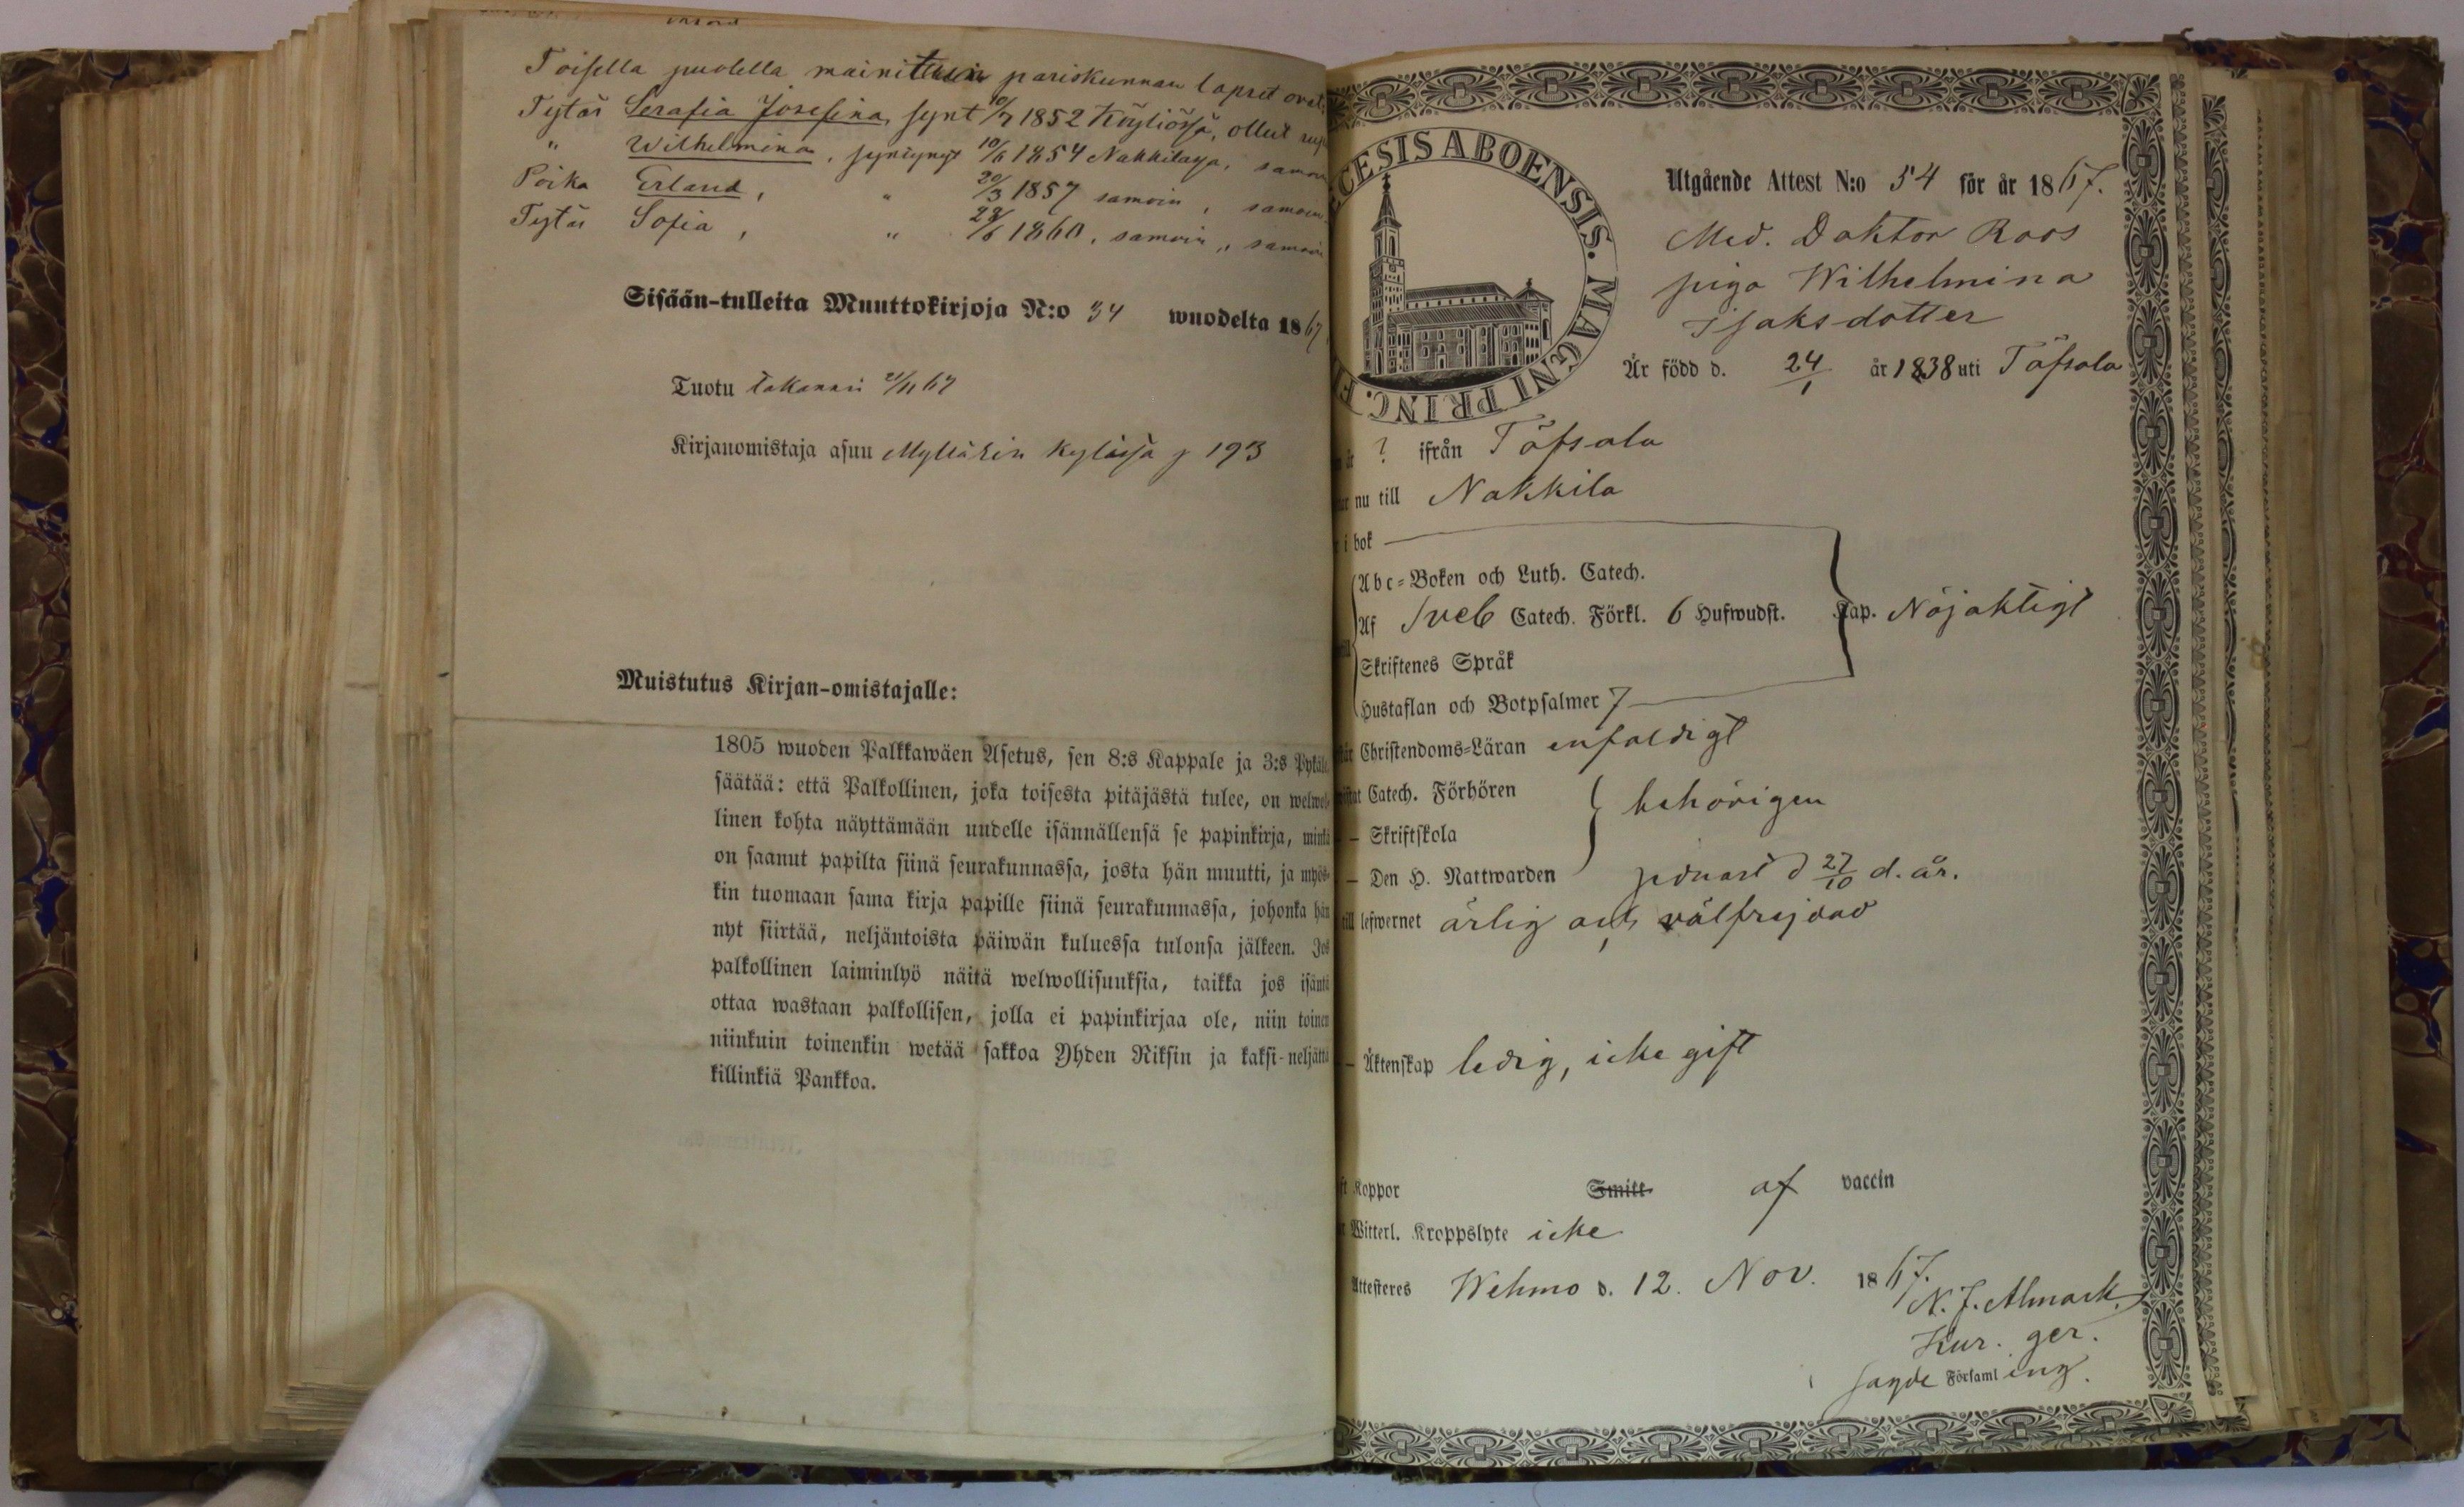 Toisella puolella mainitun pariskunnan lapset ovat:
Tytär Serafia Josefina, synt 10/7 1852 Köyliössä, ollut
" Wilhelmina, syntynyt 10/6 1854 Nakkilassa, samoin
Poika Erland, " 20/3 1857 samoin, samoin
Tytär Sofia, " 28/6 1860, samoin, samoin
Sisään-tulleita Muuttokirjoja N:o 34 wuodelta 1867
Tuotu takanani 21/11 67
Kirjanomistaja asuu kylässä 193
Muistutus Kirjan-omistajalle:
1805 wuoden Palkkawäen Asetus, sen 8:s Kappale ja 3:s Pykälä
säätää: että Palkollinen, joka toisesta pitäjästä tulee, on welwol-
linen kohta näyttämään uudelle isännällensä se papinkirja, minkä
on saanut papilta siinä seurakunnassa, josta hän muutti, ja myös-
kin tuomaan sama kirja papille siinä seurakunnassa, johonka hän
nyt siirtää, neljäntoista päiwän kuluessa tulonsa jälkeen. Jos
palkollinen laiminlyö näitä welwollisuuksia, taikka jos isäntä
ottaa wastaan palkollisen, jolla ei papinkirjaa ole, niin toinen
niinkuin toinenkin wetää sakkoa Yhden Riksin ja kaksi-neljättä
killinkiä Pankkoa.
CESIS ABOENSIS. MAGNI PRINC. F
Utgående Attest N:o 54 för år 1867.
Med. Doktor Roos
piga Wilhelmina
Isaksdotter
Är född d. 24/1 år 1838 uti Töfsala
? ifrån Töfsala
nu till Nakkila
i bok
Abc-Boken och Luth. Catech.
Af Sveb Catech. Förkl. 6 Hufwudst. Kap. Nöjaktigt
Skriftenes Språk
Hustaflan och Botpsalmer 7
Christendoms-Läran enfaldigt
Catech. Förhören behörigen
— Skriftskola
— Den H. Nattwarden senast d 27/10 d. år.
till lefwernet ärlig och välfrejdad
— Äktenskap ledig, icke gift
Koppor Smitt af vaccin
Witterl. Kroppslyte icke
Attesteres Wehmo d. 12. Nov. 1867.
N. J. Almark.
Kur. ger.
i sagde Församling.